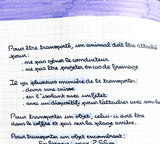 Pour être transporté, un animal doit être attaché
pour:
- ne pas gêner le conducteur
- ne pas être projeter en cas de freinage
Il y a plusieurs manière de le transporter:
- dans une caisse
- en l'isolant avec un filet
- avec un dispositif pour l'attacher avec
Pour transporter un objet, celui-ci doit être
dans le coffre et pas sur la plage arrière.
Pour transporter un objet encombrant: